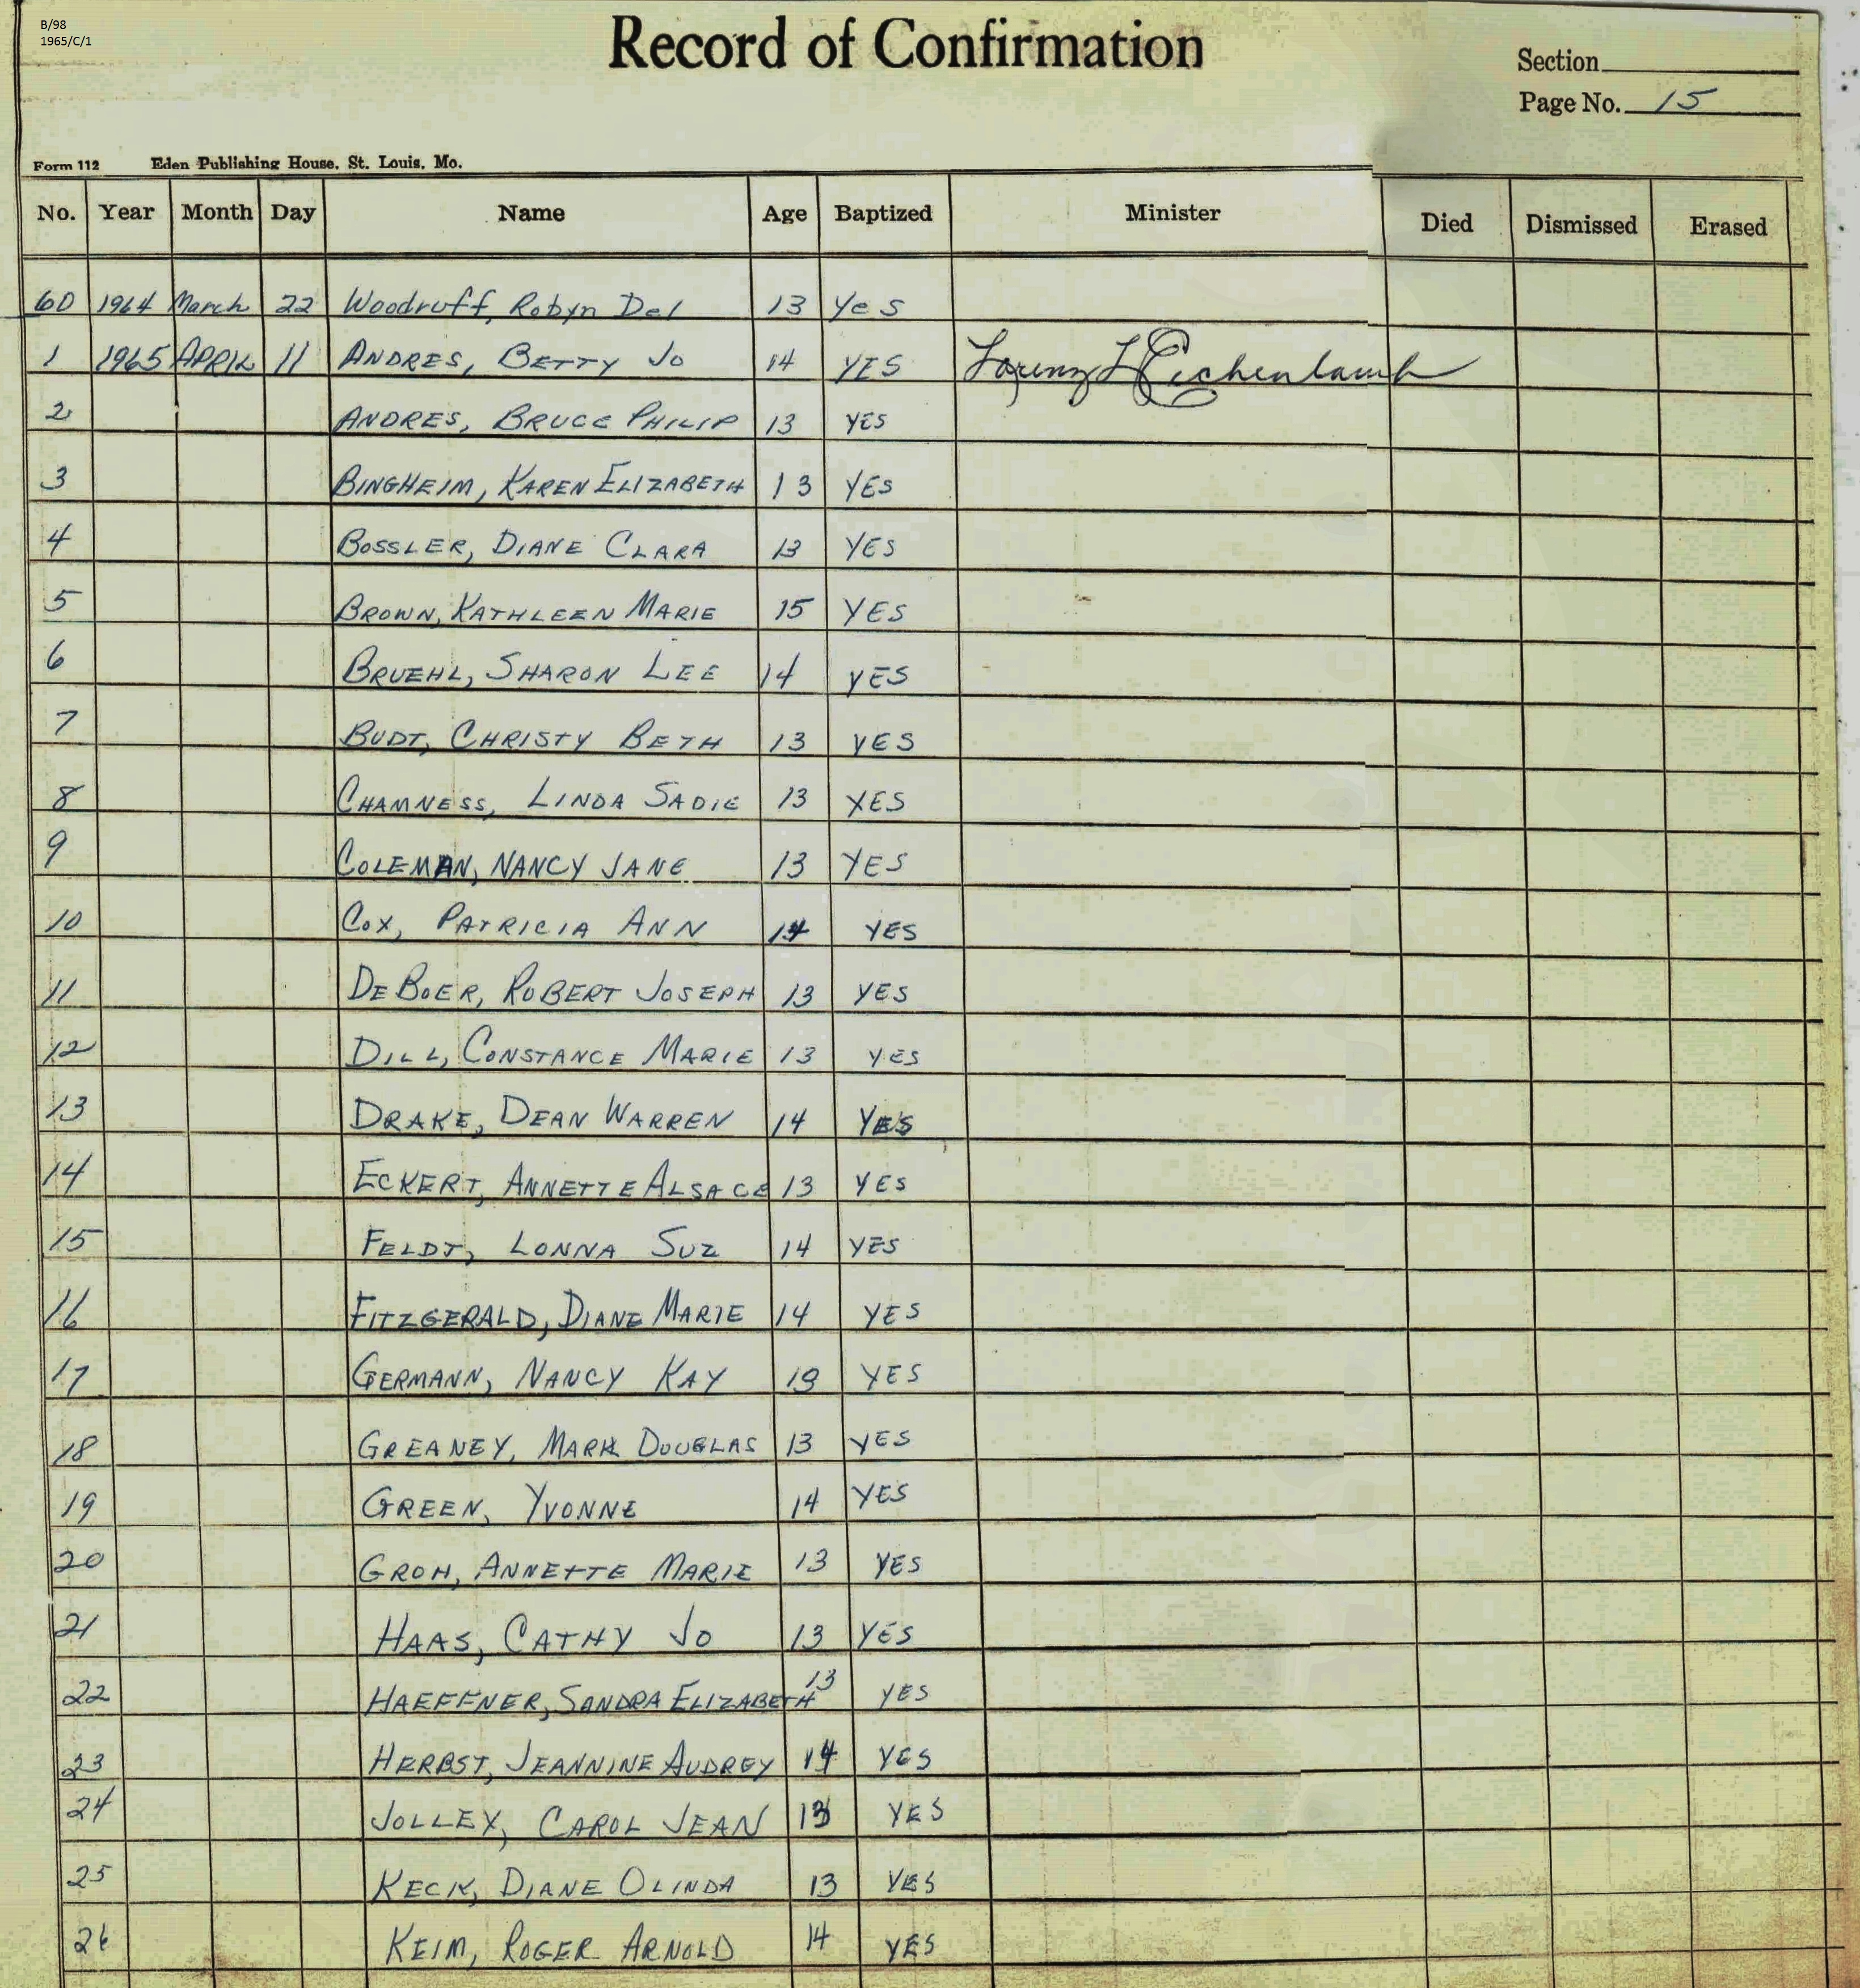 B/98
1965/C/1
Record of Confirmation
Section
Page No. 15
Form 112 Eden Publishing House, St. Louis, Mo.
No. Year Month Day Name Age Baptized Minister Died Dismissed Erased
60 1964 March 22 Woodruff, Robyn Del 13 Yes
1 1965 APRIL 11 ANDRES, BETTY JO 14 YES Lorenz Eichenlaub
2 ANDRES, BRUCE PHILIP 13 YES
3 BINGHEIM, KAREN ELIZABETH 13 YES
4 BOSSLER, DIANE CLARA 13 YES
5 BROWN, KATHLEEN MARIE 15 YES
6 BRUEHL, SHARON LEE 14 YES
7 BUDT, CHRISTY BETH 13 YES
8 CHAMNESS, LINDA SADIE 13 YES
9 COLEMAN, NANCY JANE 13 YES
10 COX, PATRICIA ANN 14 YES
11 DEBOER, ROBERT JOSEPH 13 YES
12 DILL, CONSTANCE MARIE 13 YES
13 DRAKE, DEAN WARREN 14 YES
14 ECKERT, ANNETTE ALSACE 13 YES
15 FELDT, LONNA SUZ 14 YES
16 FITZGERALD, DIANE MARIE 14 YES
17 GERMANN, NANCY KAY 13 YES
18 GREANEY, MARK DOUGLAS 13 YES
19 GREEN, YVONNE 14 YES
20 GROH, ANNETTE MARIE 13 YES
21 HAAS, CATHY JO 13 YES
22 HAEFFNER, SANDRA ELIZABETH 13 YES
23 HERBST, JEANNINE AUDREY 14 YES
24 JOLLEY, CAROL JEAN 13 YES
25 KECK, DIANE OLINDA 13 YES
26 KEIM, ROGER ARNOLD 14 YES